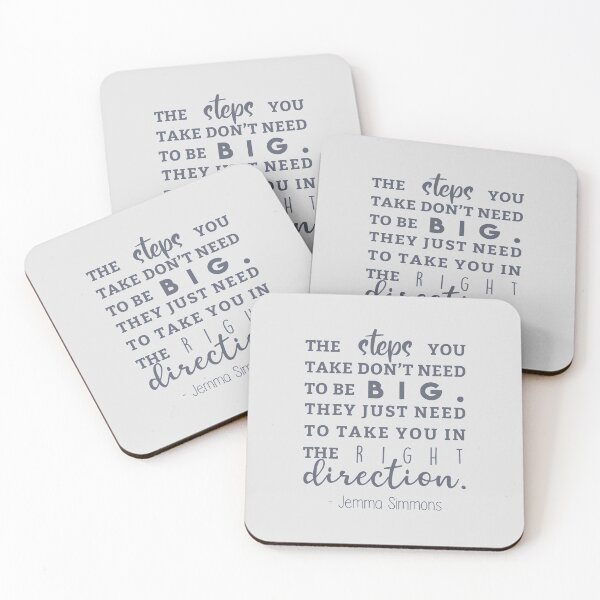 THE steps YOU
TAKE DON'T NEED
TO BE BIG.
THEY JUST NEED
IN
THE steps YOU
TAKE DON'T NEED
TO BE BIG.
THEY JUST NEED
TO TAKE YOU IN
THE RIGHT
direction
THE steps YOU
TAKE DON'T NEED
TO BE BIG.
THEY JUST NEED
TO TAKE YOU IN
THE RIGHT
direction.
- Jemma Sim
THE steps YOU
TAKE DON'T NEED
TO BE BIG.
THEY JUST NEED
TO TAKE YOU IN
THE RIGHT
direction.
- Jemma Simmons